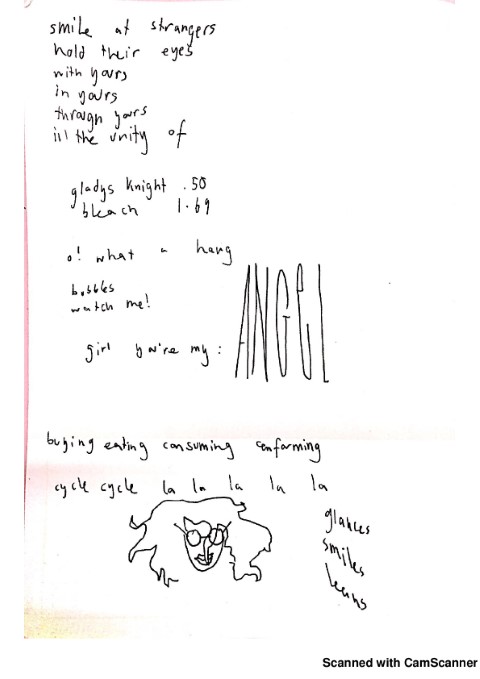 smile at strangers
hold their eyes
with yours
in yours
through yours
in the unity of
gladys knight .50
bleach 1.69
o! what a hang
bubbles
watch me!
girl you're my:
ANGEL
buying eating consuming conforming
cycle cycle la la la la la
glances
smiles
leans
Scanned with CamScanner